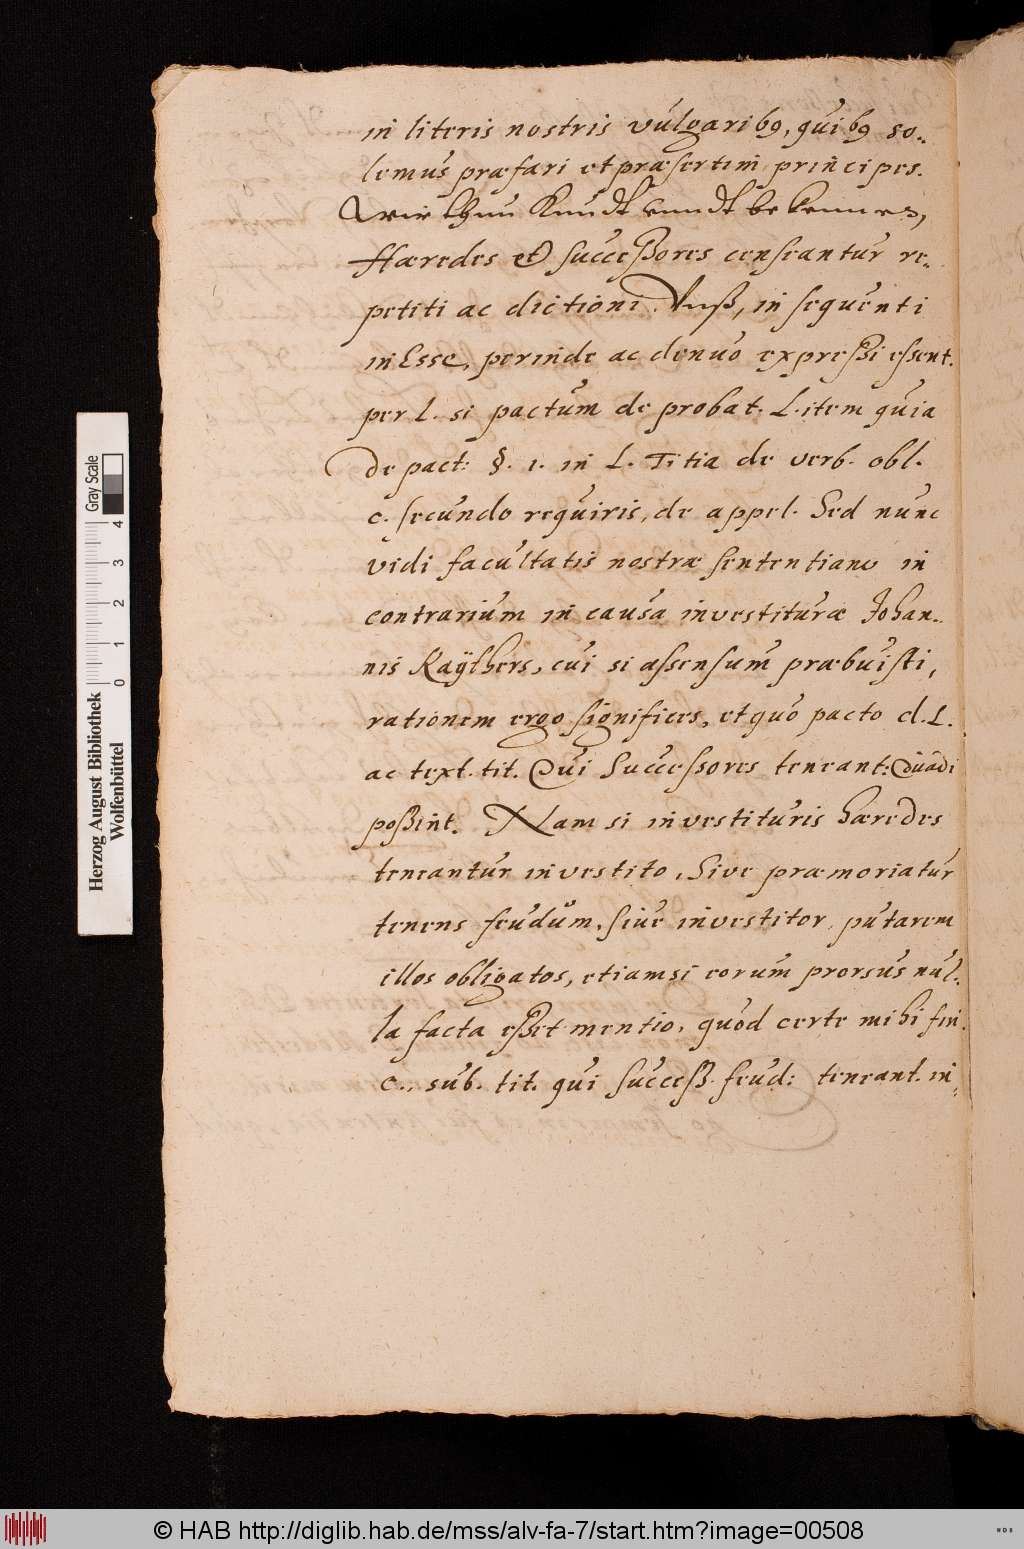 in literis nostris vulgarib9, quib9 so-
lemus præfari et præsertim principes.
Wir thun kundt vnndt bekennen,
Hæredes & successores censeantur re-
petiti ac dictioni Vnß, in sequenti
inesse, perinde ac denuo expreßi essent.
per l. si pactum de probat. L. item quia
De pact: §. 1. in L. Titia de verb. obl.
c. secundo requiris, de appel. Sed nunc
vidi facultatis nostræ sententiam in
contrarium in causa investituræ Johan-
nis Kaÿthers, cui si assensum præbuisti,
rationem ergo significes, et quo pacto d. L.
ac text. tit. Qui successores teneant:
poßint. Nam si in vestituris hæredes
teneantur investito, Sive præmoriatur
tenens feudum, sive investitor, putarem
illos obligatos, etiamsi eorum prorsus nul-
la facta eßet mentio, quod certe mihi fin.
c.. sub. tit. qui success. feud: teneant. in-
Herzog August Bibliothek
Wolfenbüttel
0 1 2 3 4
Gray Scale
© HAB http://diglib.hab.de/mss/alv-fa-7/start.htm?image=00508